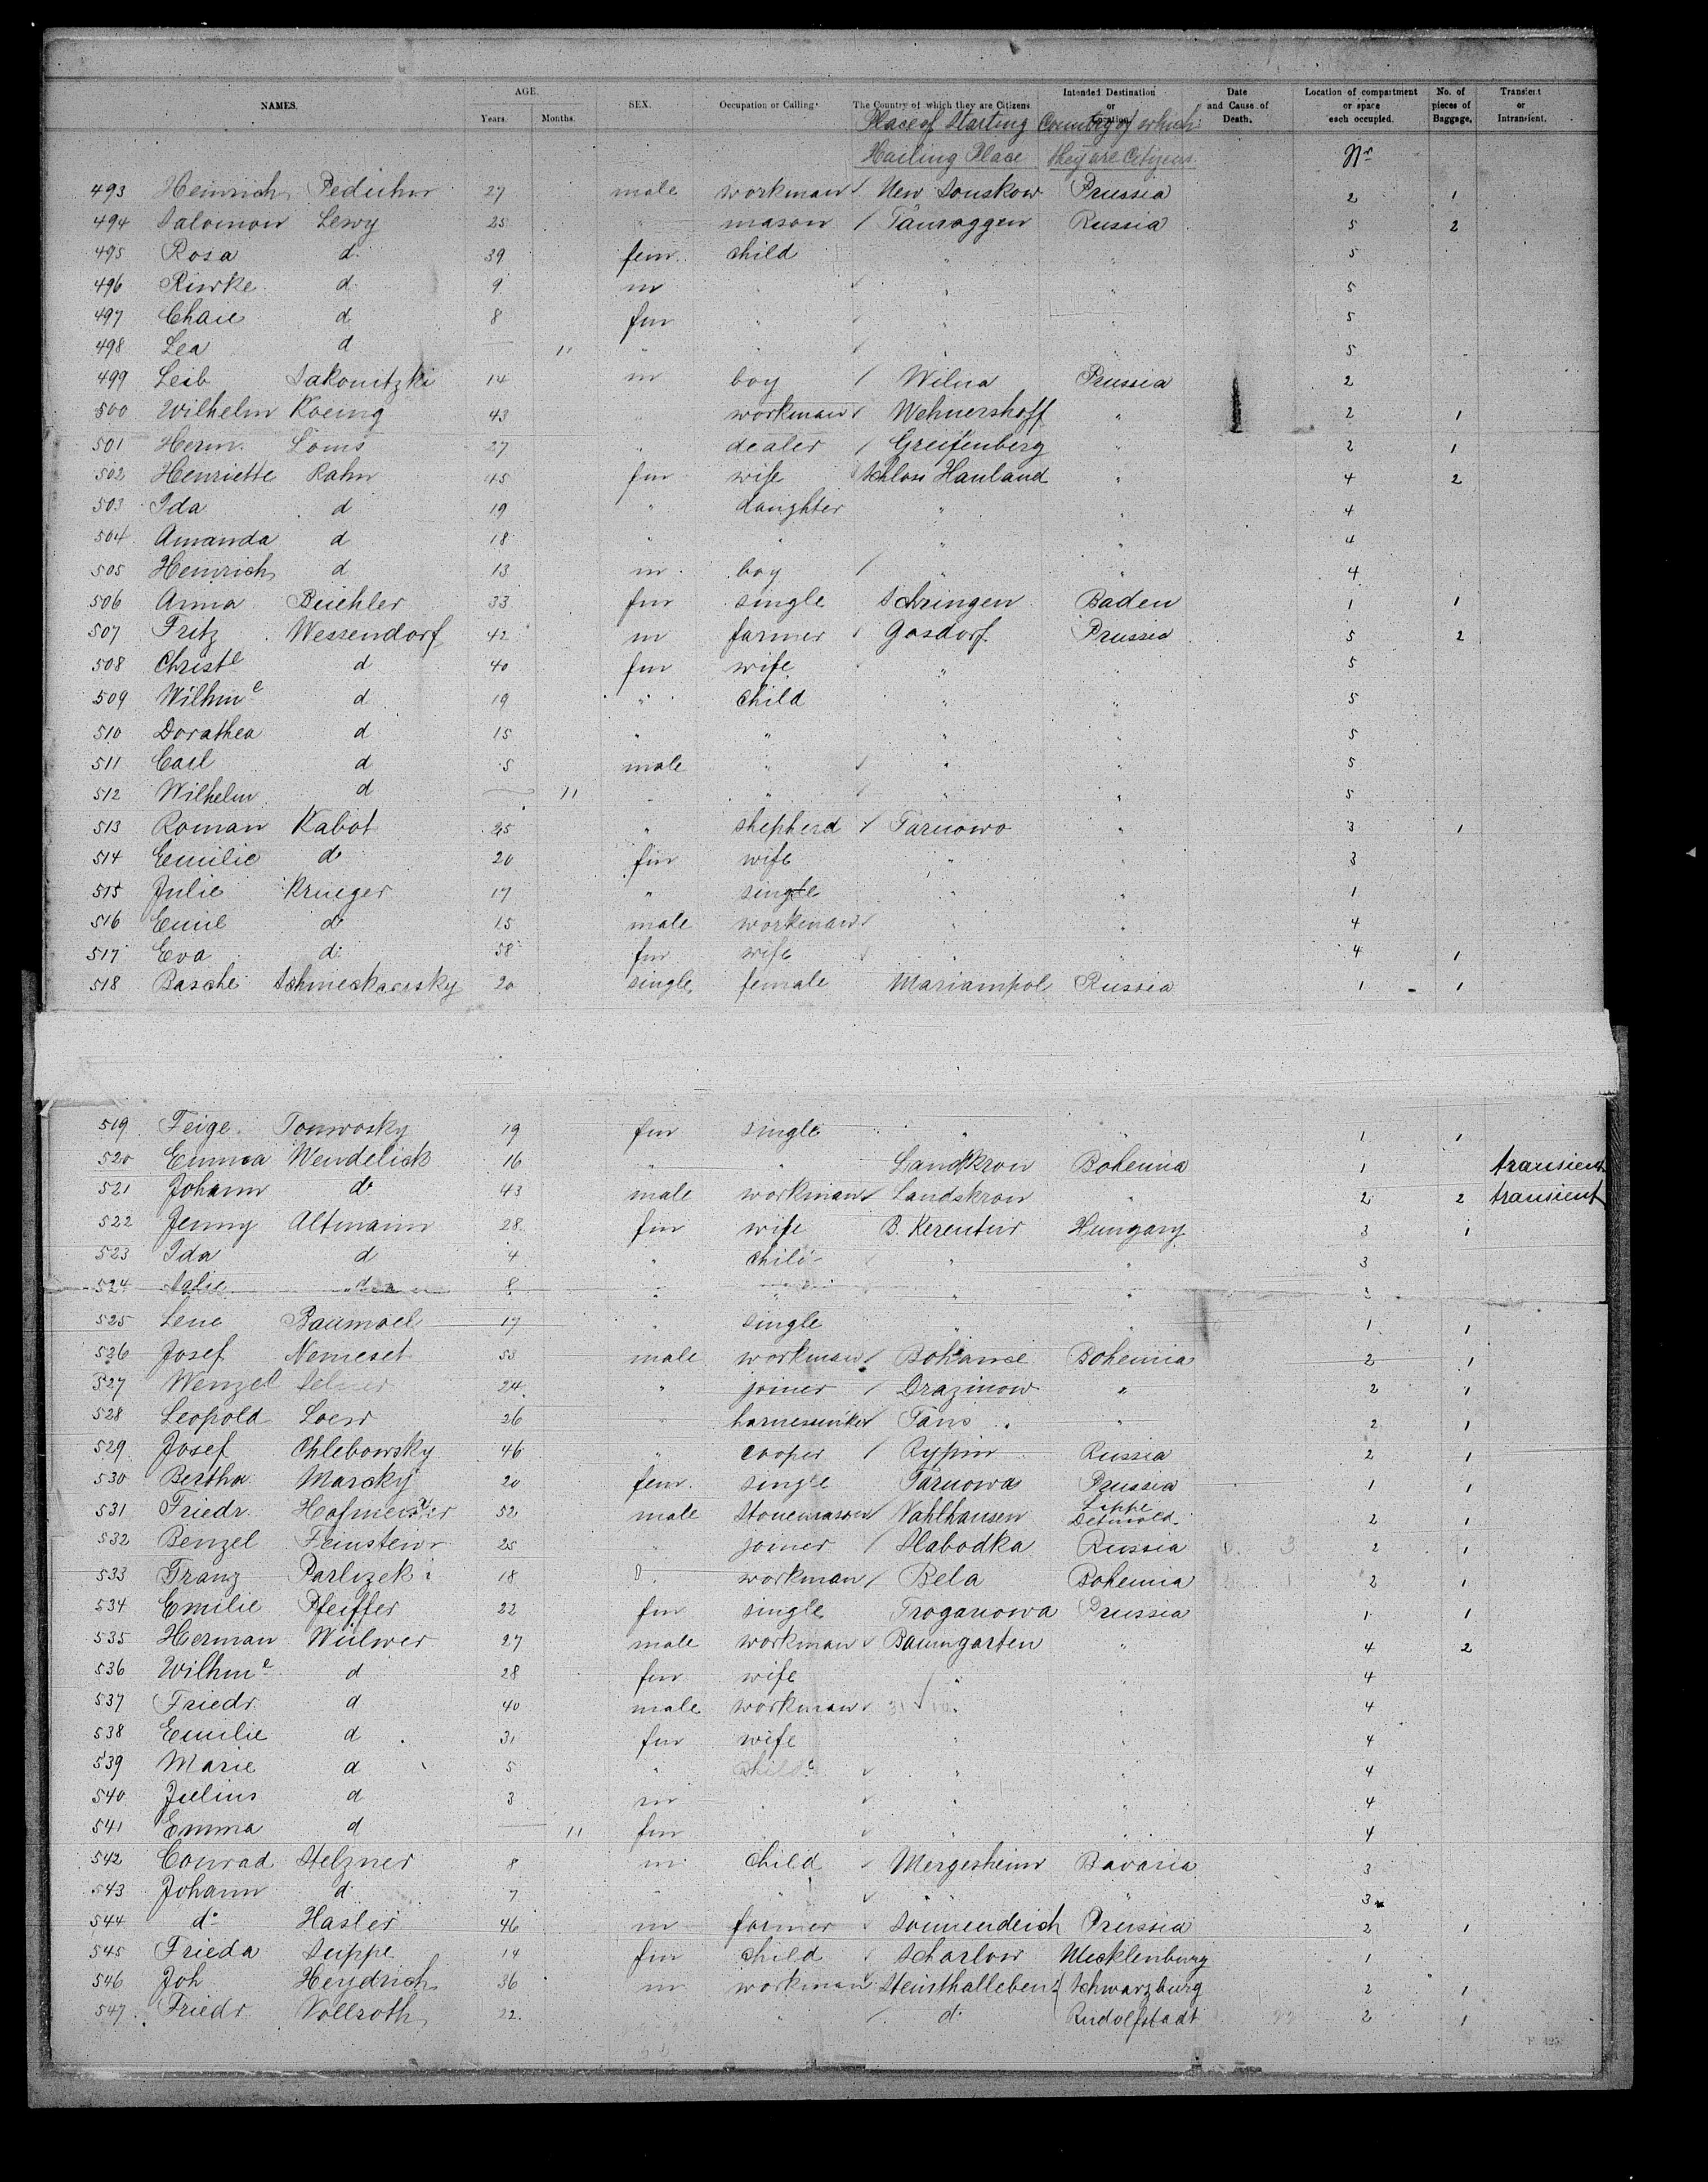 NAMES. AGE. SEX. Occupation or Calling. The Country of which they are Citizens. Intended Destination or Location. Date and Cause of Death. Location of compartment or space each occupied. No. of pieces of Baggage. Transient or Intransient.
Years. Months.
Place of Starting Country of which
Hailing Place they are Citizens. Nr
493 Heinrich 27 male workman New Prussia 2 1
494 Salomon Lewy 25 " mason Tauroggen Russia 5 2
495 Rosa d. 39 fem. child " " 5
496 Riwke d 9 m " " " 5
497 Chaie d 8 fm " " " 5
498 Lea d — 11 " " " " 5
499 Leib Sakowitzki 14 m boy Wilna Prussia 2
500 Wilhelm Koenig 43 " workman Wehnershoff " 2 1
501 Herm. 27 " dealer Greifenberg " 2 1
502 Henriette Rahn 45 fm wife Schloss Hauland " 4 2
503 Ida d 19 " daughter " " 4
504 Amanda d 18 " " " " 4
505 Heinrich d 13 m boy " " 4
506 Anna Beuhler 33 fm single Baden 1 1
507 Fritz Wessendorf 42 m farmer Gosdorf Prussia 5 2
508 Christe d 40 fm wife " " 5
509 Wilhme d 19 " child " " 5
510 Dorathea d 15 " " " " 5
511 Carl d 5 male " " " 5
512 Wilhelm d — 11 " " " " 5
513 Roman Kabot 25 " shepherd Tarnowo " 3 1
514 Emilie do 20 fm wife " " 3
515 Julie Krueger 17 " single " " 1
516 Emil do 15 male workman " " 4
517 Eva d: 58 fm wife " " 4 1
518 Basche 20 single female Mariampol Russia 1 1
519 Feige Tonwosky 19 fm single " " 1 1
520 Emma Wendelick 16 " " Landskron Bohemia 1 transient
521 Johann do 43 male workman Landskron " 2 2 transient
522 Jenny Altmann 28 fm wife B. Kerentur Hungary 3 1
523 Ida d 4 " child " " 3
524 d 8 " " "
525 Lene Baumoel 17 " single " " 1 1
526 Josef Nemeset 53 male workman Bohemia 2 1
527 Wenzel 24 " joiner Drazinow " 2 1
528 Leopold Loew 26 " Tans " 2 1
529 Josef Chlebowsky 46 " cooper Rypin Russia 2 1
530 Bertha Marcky 20 fem. single Tarnowa Prussia 1 1
531 Friedr. Hofmeister 52 male Stonemason Vahlhausen Lippe Detmold. 2 1
532 Benzel Feinstein 25 " joiner Slabodka Russia 2 1
533 Franz Parlizek 18 workman Bela Bohemia 2 1
534 Emilie Pfeiffer 22 fm single Troganowa Prussia 1 1
535 Herman Wulwer 27 male workman Baumgarten " 4 2
536 Wilhme d 28 fm wife " " 4
537 Friedr. d 40 male workman " " 4
538 Emilie d 31 fm wife " " 4
539 Marie d 5 " child " " 4
540 Julius d 3 m " " " 4
541 Emma d — 11 fm " " " 4
542 Conrad Stelzner 8 m child Mergesheim Bavaria 3
543 Johann d. 7 " " " " 3
544 do Hasler 46 m farmer Sonnendeich Prussia 2 1
545 Frieda Suppe 14 fm child Scharlow Mecklenburg 1
546 Joh Heydrich 36 m workman Steinthalleben Schwarzburg 2 1
547 Friedr Vollroth 22 " d. Rudolfstadt 2 1